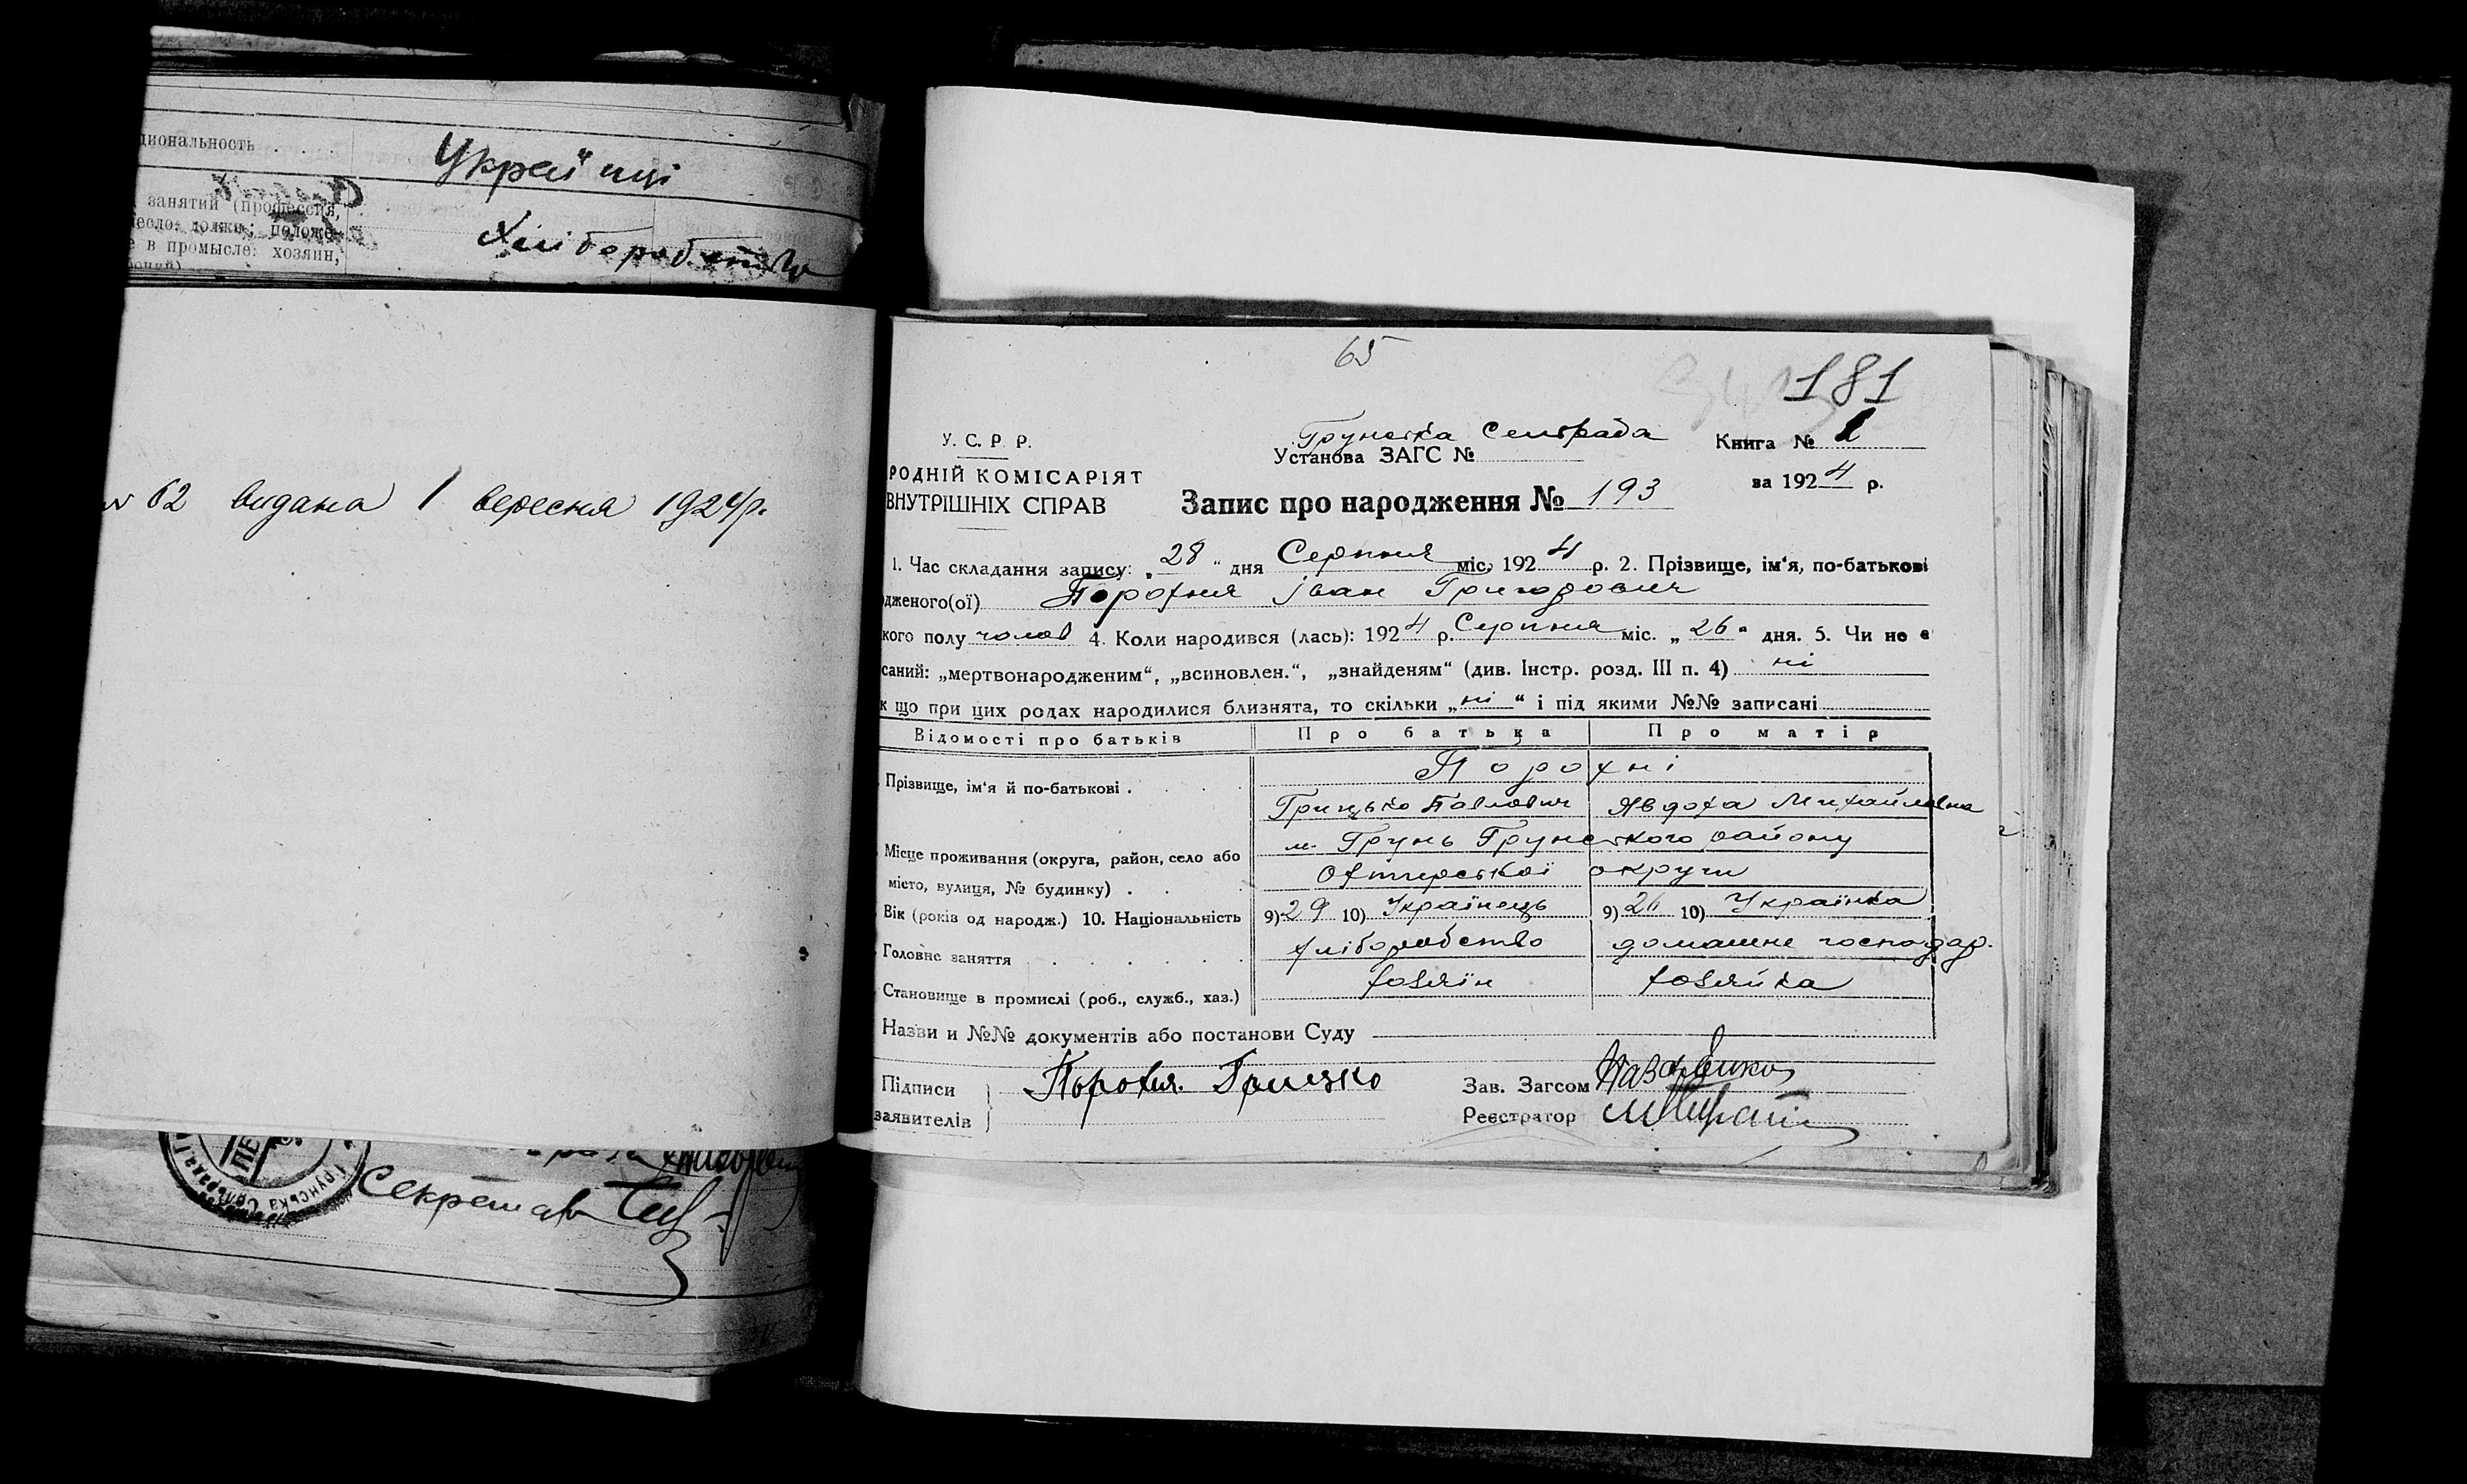 циональность . . . Украïнці
занятий (профессия,
ремесло: должн; положе-
е в промысле: хозяин, Хліборобство
№ 62 видана 1 вересня 1924 р.
Грунська Сельрада
Секретар
65
181
У. С. Р. Р.
РОДНІЙ КОМІСАРІЯТ
ВНУТРІШНІХ СПРАВ
Грунська Сельрада
Установа ЗАГС №
Книга № 1
за 1924 р.
Запис про народження № 193
1. Час складання запису: „28“ дня Серпня міс. 1924 р. 2. Прізвище, ім'я, по-батькові
дженого(ої) Порохня Іван Григорович
кого полу чолов 4. Коли народився (лась): 1924 р. Серпня міс. „26“ дня. 5. Чи не є
саний: „мертвонародженим“, „всиновлен.“, „знайденям“ (див. Інстр. розд. III п. 4) ні
к що при цих родах народилися близнята, то скільки „ні“ і під якими №№ записані
Відомості про батьків Про батька Про матір
Порохні
Прізвище, ім'я й по-батькові . Грицько Павлович Явдоха Михайловна
м. Грунь Грунського району
Місце проживання (округа, район, село або
місто, вулиця, № будинку) . Охтирської округи
Вік (років од народж.) 10. Національність 9) 29 10) Українець 9) 26 10) Українка
Головне заняття хліборобство домашне господар.
Становище в промислі (роб., служб., хаз.) хозяїн хозяйка
Назви и №№ документів або постанови Суду
Підписи
заявителів Порохня Грицько
Зав. Загсом
Реєстратор